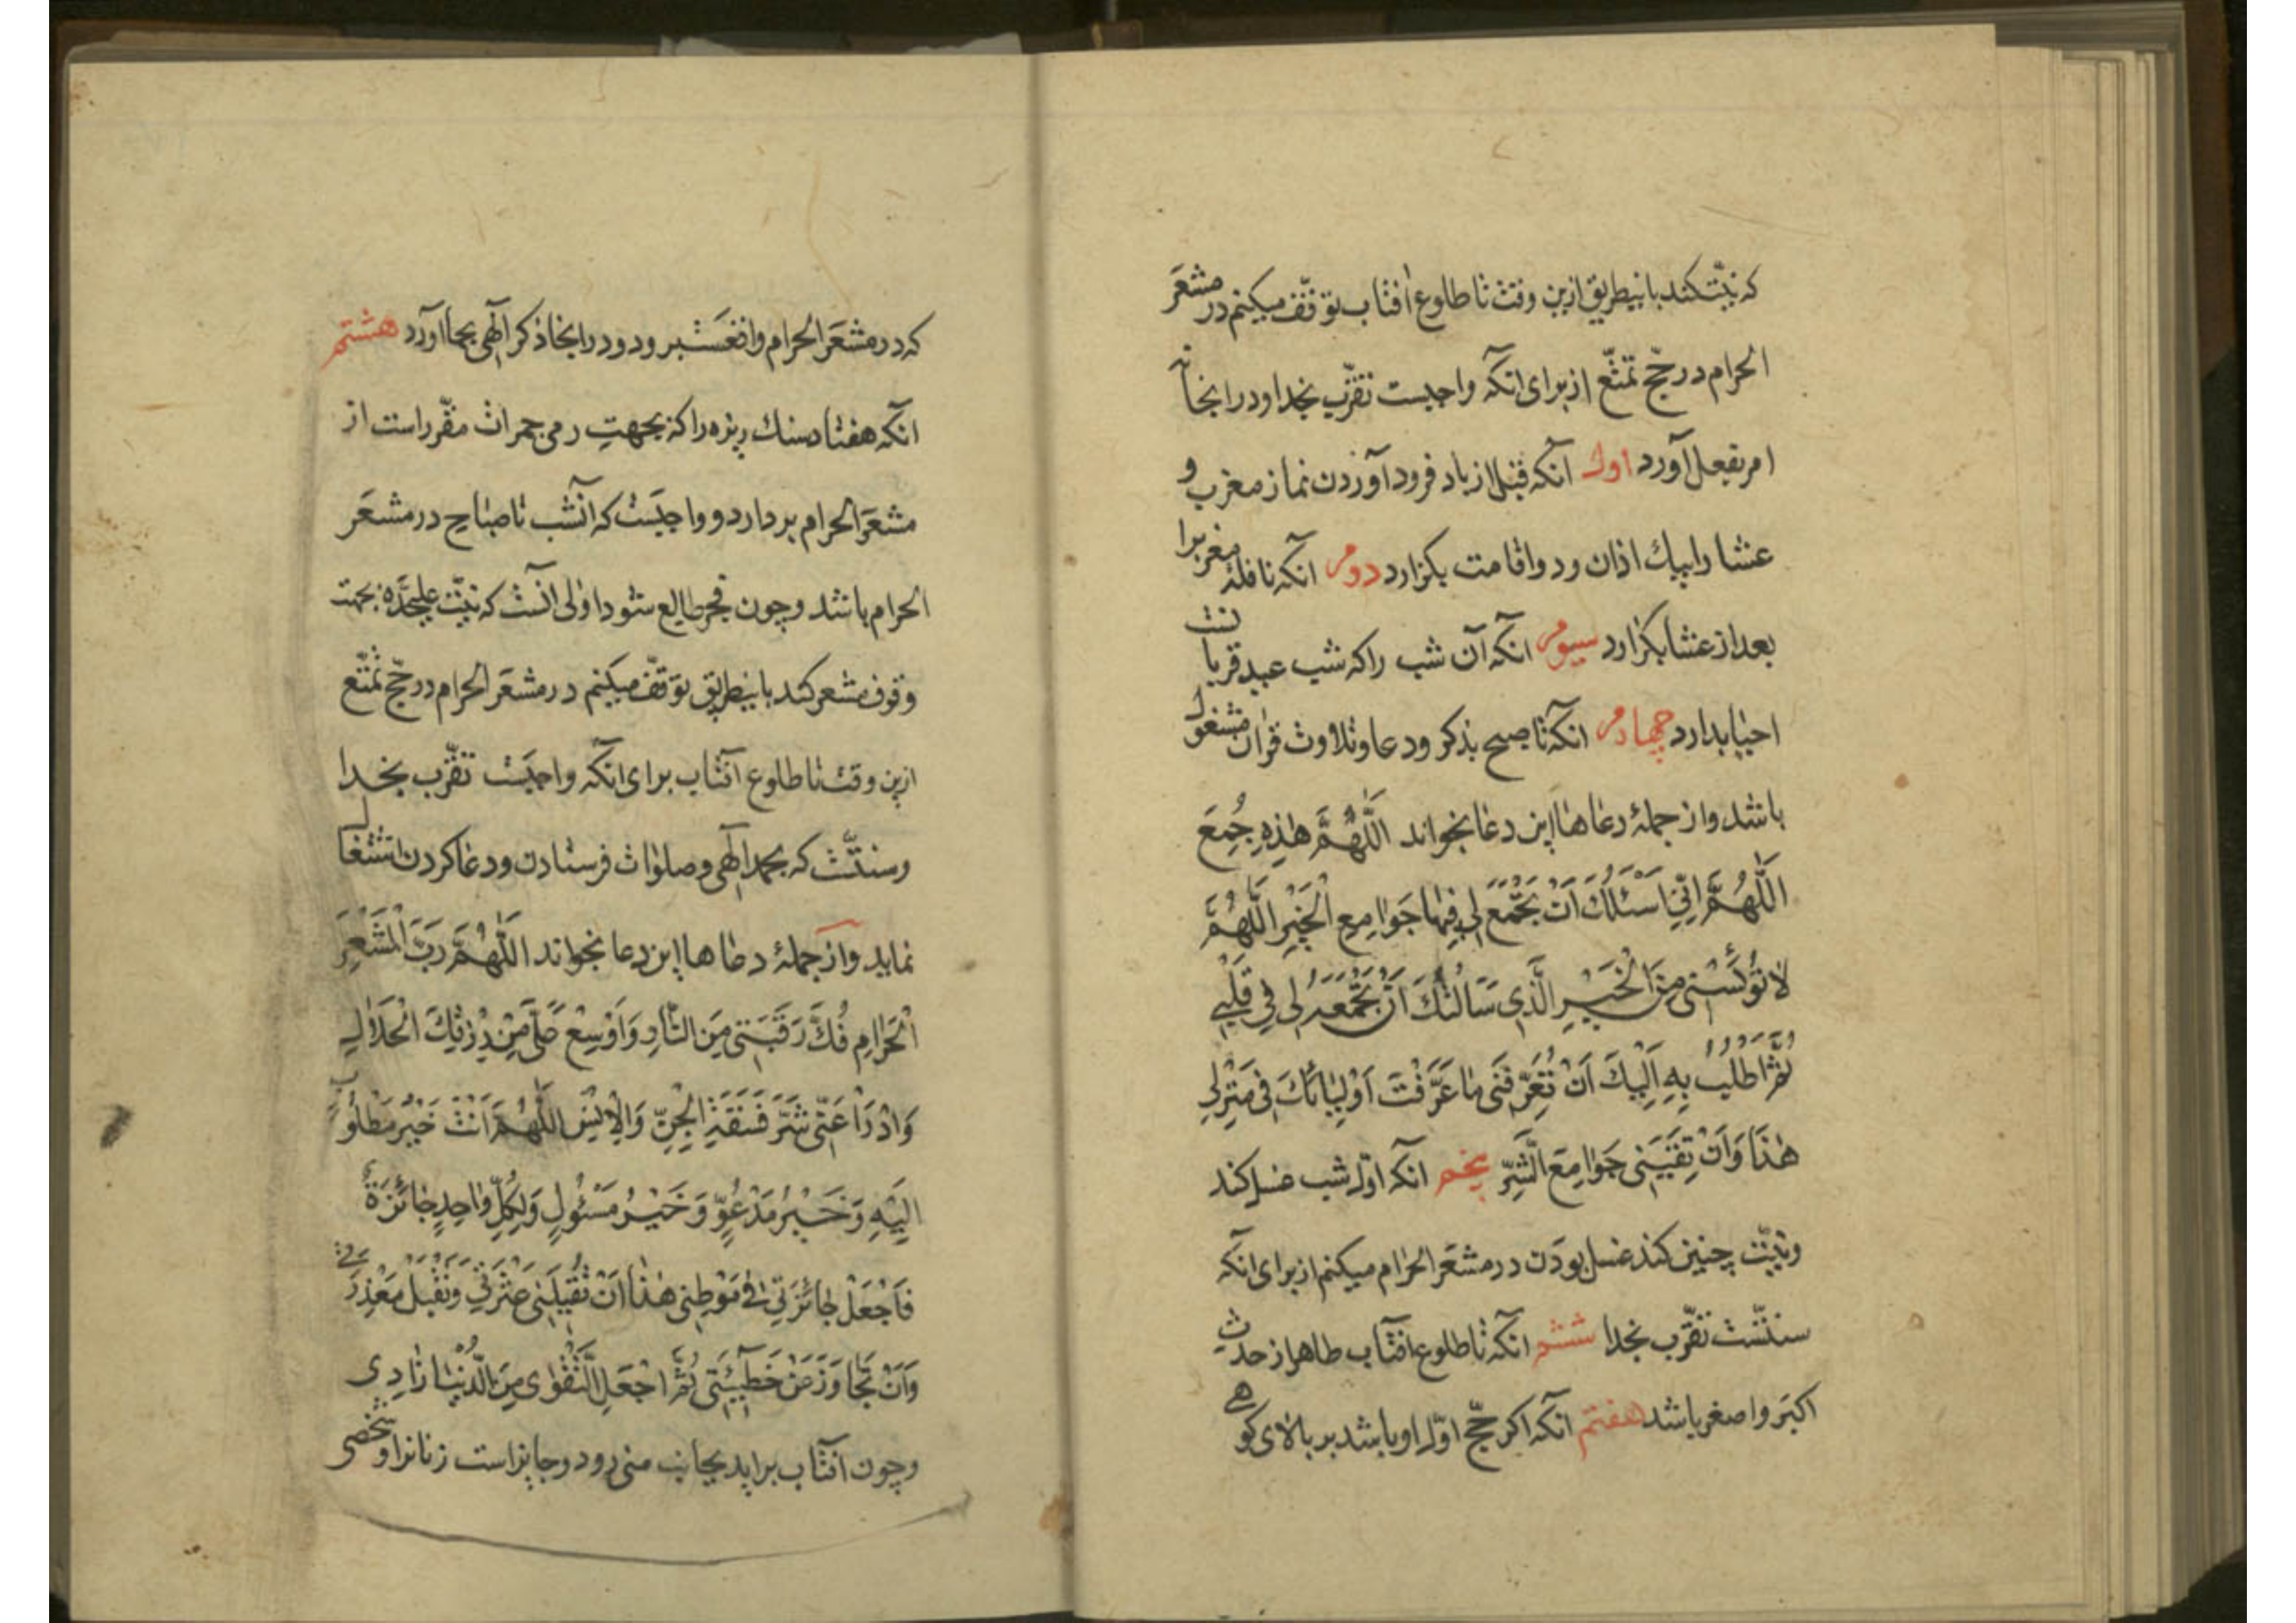 که نیّت کند باینطریق ازین وقت تا طلوع آفتاب توقّف میکنم در مشعَر
الحرام در حجّ تمتّع از برای آنکه واجبست تقرّب بخدا و در اینجا نه
امر بفعل آورد اول آنکه قبل از بار فرود آوردن نماز مغرب و
عشا را بیک اذان و دو اقامت بگزارد دوم آنکه نافلهٔ مغرب را
بعد از عشا بگزارد سیوم آنکه آن شب را که شب عید قربانست
احیا بدارد چهارم آنکه تا صبح بذکر و دعا و تلاوت قرآن مشغول
باشد و از جملهٔ دعاها این دعا بخواند اللّهُمَّ هٰذِهِ جُمَعَ
اللّهُمَّ اِنّی اَسْئَلُكَ اَنْ تَجْمَعَ لی فِیها جَوامِعِ الْخَیْرِ اللّهُمَّ
لا تُؤْیِسْنی مِنَ الْخَیْرِ الَّذی سَاَلْتُكَ اَنْ تَجْمَعَهُ لی فی قَلْبی
ثُمَّ اَطْلُبُ بِهِ اِلَیْكَ اَنْ تُعَرِّفَنی ما عَرَّفْتَ اَوْلِیائَكَ فی مَنْزِلی
هٰذا وَ اَنْ تَقِیَنی جَوامِعَ الشَّرِّ پنجم آنکه اوّل شب غسل کند
و نیّت چنین کند غسل بودن در مشعَر الحرام میکنم از برای آنکه
سنّتست تقرّب بخدا ششم آنکه تا طلوع آفتاب طاهر از حدث
اکبر و اصغر باشد هفتم آنکه اکر حجّ اوّل او باشد بر بالای کوهی
که در مشعَر الحرام واقعَست برود و در اینجا ذکر الٓهی بجا آورد هشتم
آنکه هفتاد سنك ریزه را که بجهتِ رمی جمرات مقرّر است از
مشعَر الحرام بردارد و واجبَست که آنشب تا صباح در مشعَر
الحرام باشد و چون فجر طالع شود اولی آنست که نیّت علیحدّه بجهت
وقوف مشعر کند باینطریق توقّف میکنم در مشعَر الحرام در حجّ تمتّع
ازین وقت تا طلوع آفتاب برای آنکه واجبَست تقرّب بخدا
و سنّتست که بحمد الٓهی و صلوات فرستادن و دعا کردن اشتغال
نماید و از جملهٔ دعاها این دعا بخواند اللّهُمَّ رَبَّ الْمَشْعَرِ
الْحَرامِ فُكَّ رَقَبَتی مِنَ النّارِ وَ اَوْسِعْ عَلَیَّ مِنْ رِزْقِكَ الْحَلالِ
وَ ادْرَأْ عَنّی شَرَّ فَسَقَةِ الْجِنِّ وَ الْاِنْسِ اللّهُمَّ اَنْتَ خَیْرُ مَطْلُوبٍ
اِلَیْهِ وَ خَیْرُ مَدْعُوٍّ وَ خَیْرُ مَسْئُولٍ وَ لِكُلِّ واحِدٍ جائِزَةٌ
فَاجْعَلْ جائِزَتی فی مَوْطِنی هٰذا اَنْ تُقیلَنی عَثْرَتی وَ تَقْبَلَ مَعْذِرَتی
وَ اَنْ تَجاوَزَ عَنْ خَطیئَتی ثُمَّ اجْعَلِ التَّقْوٰی مِنَ الدُّنْیا زادی
و چون آفتاب براید بجانب منی رود و جایز است زنانرا و شخصی